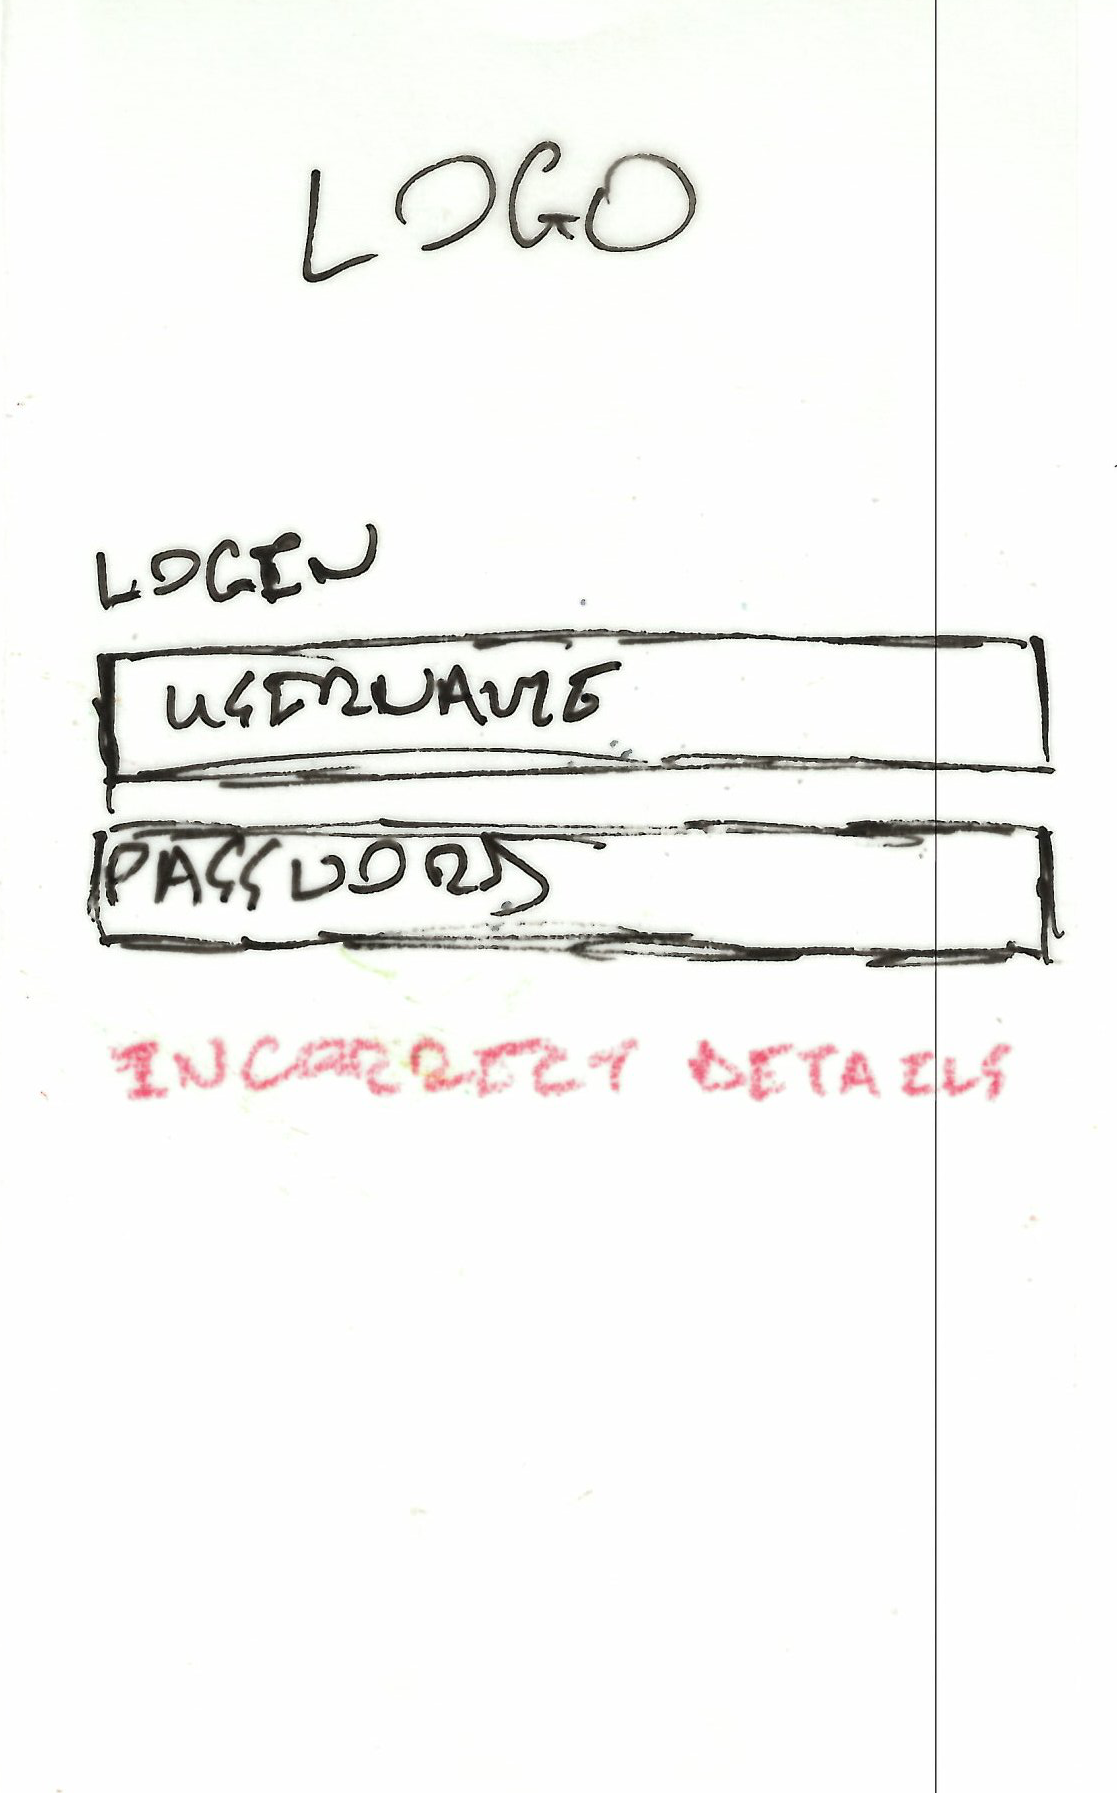 LOGO
LOGIN
USERNAME
PASSWORD
INCORRECT DETAILS